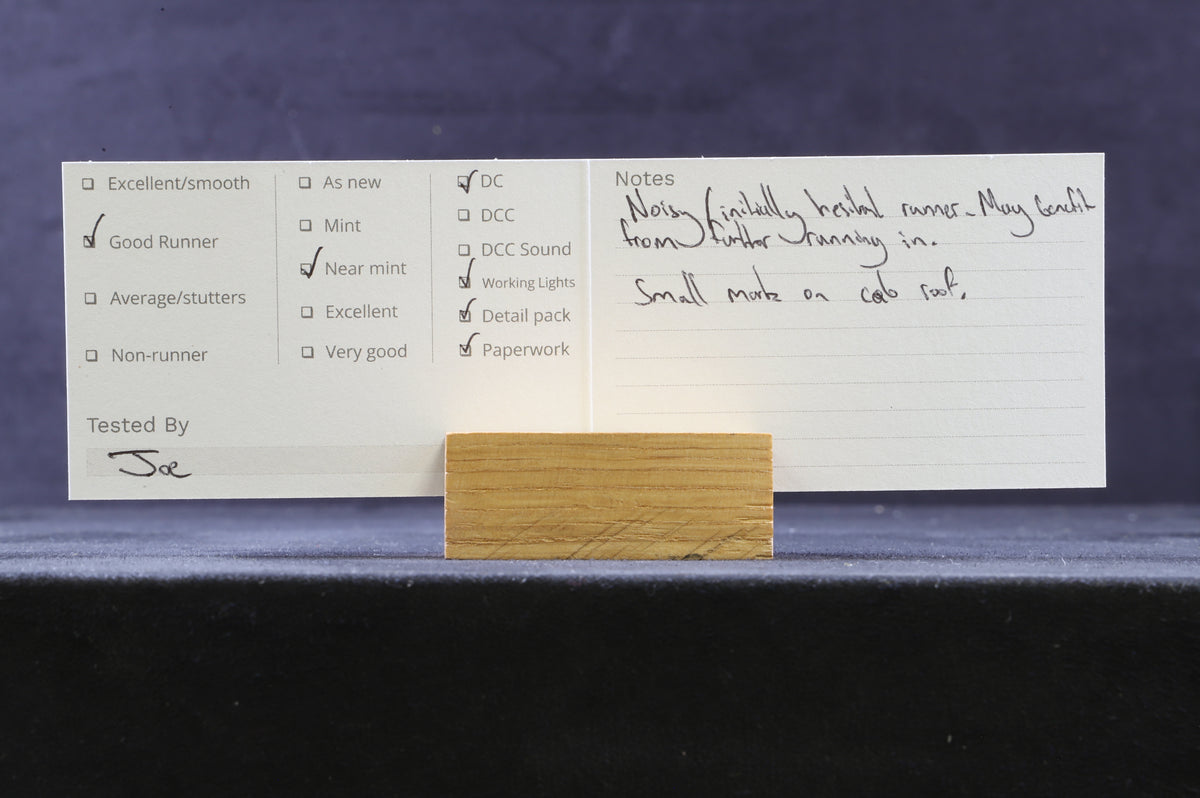 Excellent/smooth
Good Runner
Average/stutters
Non-runner
As new
Mint
Near mint
Excellent
Very good
DC
DCC
DCC Sound
Working Lights
Detail pack
Paperwork
Tested By
Joe
Notes
Noisy/initially hesitant runner. May benefit
from further running in.
Small mark on cab roof.